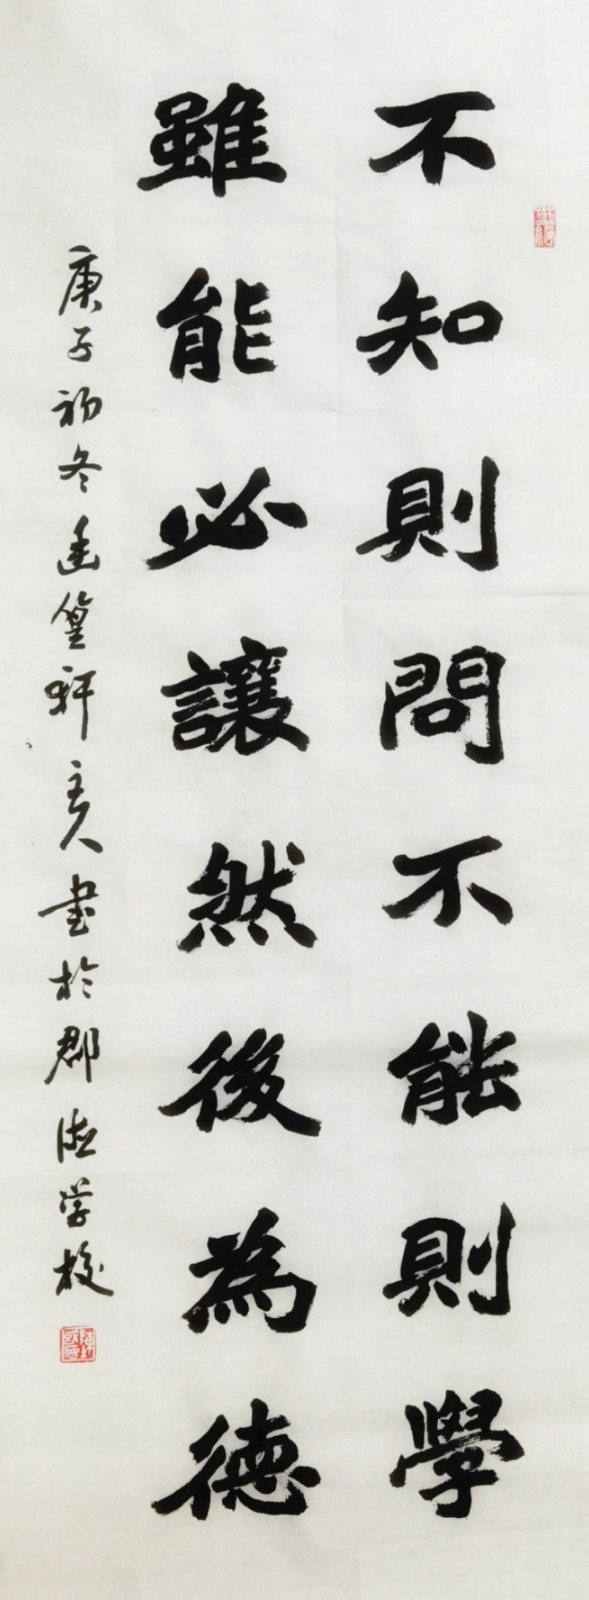 不知則問不能則學
雖能必讓然後為德
庚子初冬幽篁軒主人書於郡德学校